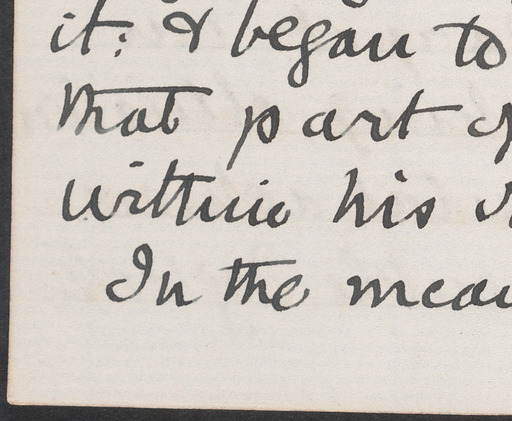 it: & began to
that part of
within his
In the mean